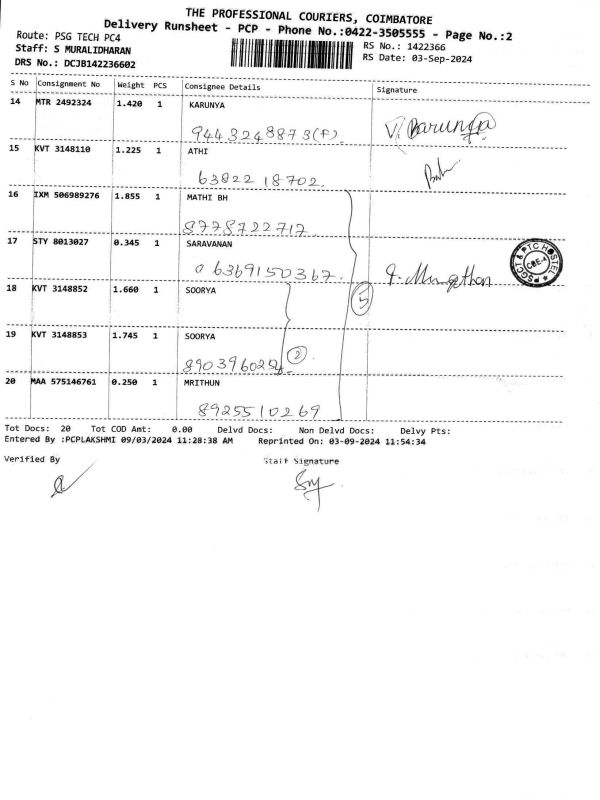 THE PROFESSIONAL COURIERS, COIMBATORE
Delivery Runsheet - PCP - Phone No.:0422-3505555 - Page No.:2
Route: PSG TECH PC4
RS No.: 1422366
Staff: S MURALIDHARAN
RS Date: 03-Sep-2024
DRS No.: DCJB142236602
S No Consignment No Weight PCS Consignee Details Signature
14 MTR 2492324 1.420 1 KARUNYA
9443248873(F)
V. Karunya
15 KVT 3148110 1.225 1 ATHI
63822 18702.
16 IXM 506989276 1.855 1 MATHI BH
8778722717
17 STY 8013027 0.345 1 SARAVANAN
0 6369150367.
PSGCT & PTC HOSTEL
CBE-4
18 KVT 3148852 1.660 1 SOORYA
5
19 KVT 3148853 1.745 1 SOORYA
2
20 MAA 575146761 0.250 1 MRITHUN
8925510269
Tot Docs: 20 Tot COD Amt: 0.00 Delvd Docs: Non Delvd Docs: Delvy Pts:
Entered By :PCPLAKSHMI 09/03/2024 11:28:38 AM Reprinted On: 03-09-2024 11:54:34
Verified By Staff Signature